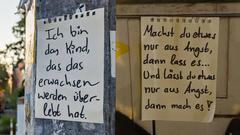 Ich bin
das Kind,
das das
erwachsen
werden über-
lebt hat.
Machst du etwas
nur aus Angst,
dann lass es...
Und lässt du etwas
nur aus Angst,
dann mach es!